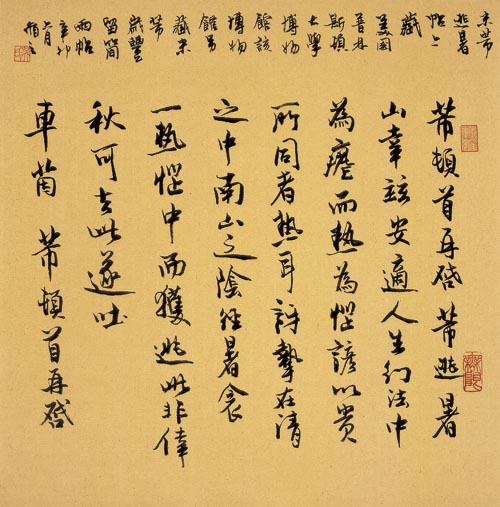 芾頓首再啓芾逃暑
山幸兹安適人生幻法中
為虐而熱為惱諺以貴
所同者熱耳訝挈在清
之中南山之陰經暑衾
一熱惱中而獲逃此非倖
秋可去此遂吐
車茵 芾頓首再啓
米芾逃暑
帖今
藏
美國
普林
斯頓
大學
博物
館該
博物
館另
藏米
芾
歲豐
留簡
兩帖
辛卯
六月